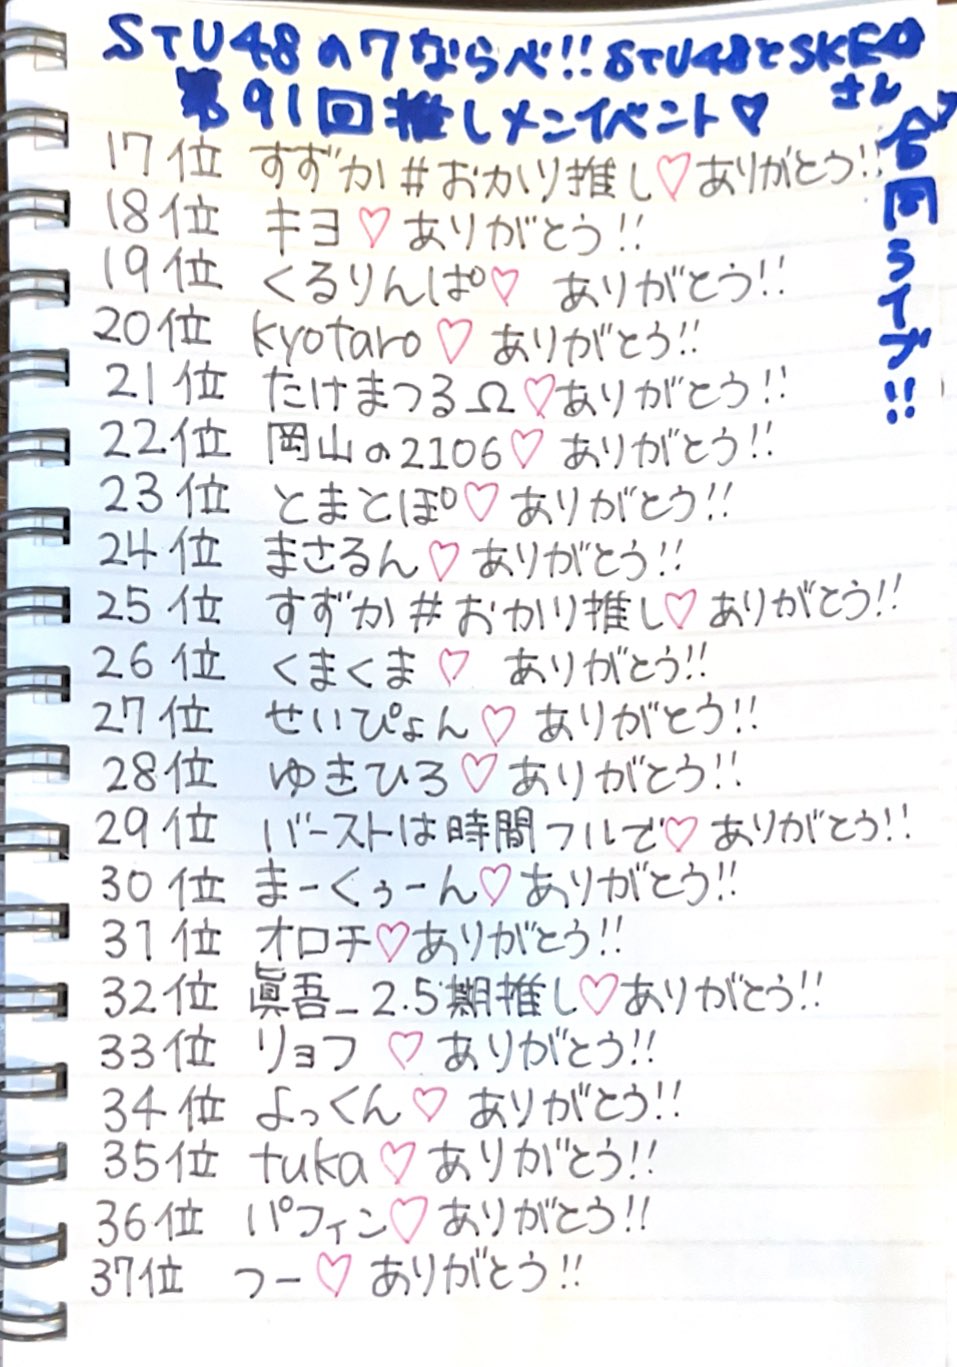 STU48の7ならべ!! STU48とSKE48
さん
合同ライブ!!
第91回推しメンイベント♡
17位 すずか#おかり推し♡ありがとう!!
18位 キヨ♡ありがとう!!
19位 くるりんぱ♡ ありがとう!!
20位 kyotaro♡ ありがとう!!
21位 たけまつるΩ♡ありがとう!!
22位 岡山の2106♡ ありがとう!!
23位 とまとぽ♡ ありがとう!!
24位 まさるん♡ ありがとう!!
25位 すずか#おかり推し♡ありがとう!!
26位 くまくま♡ ありがとう!!
27位 せいぴょん♡ ありがとう!!
28位 ゆきひろ♡ありがとう!!
29位 バーストは時間フルで♡ ありがとう!!
30位 まーくぅーん♡ありがとう!!
31位 オロチ♡ありがとう!!
32位 眞吾_2.5期推し♡ありがとう!!
33位 リョフ ♡ ありがとう!!
34位 よっくん♡ ありがとう!!
35位 tuka♡ありがとう!!
36位 パフィン♡ありがとう!!
37位 つー♡ ありがとう!!